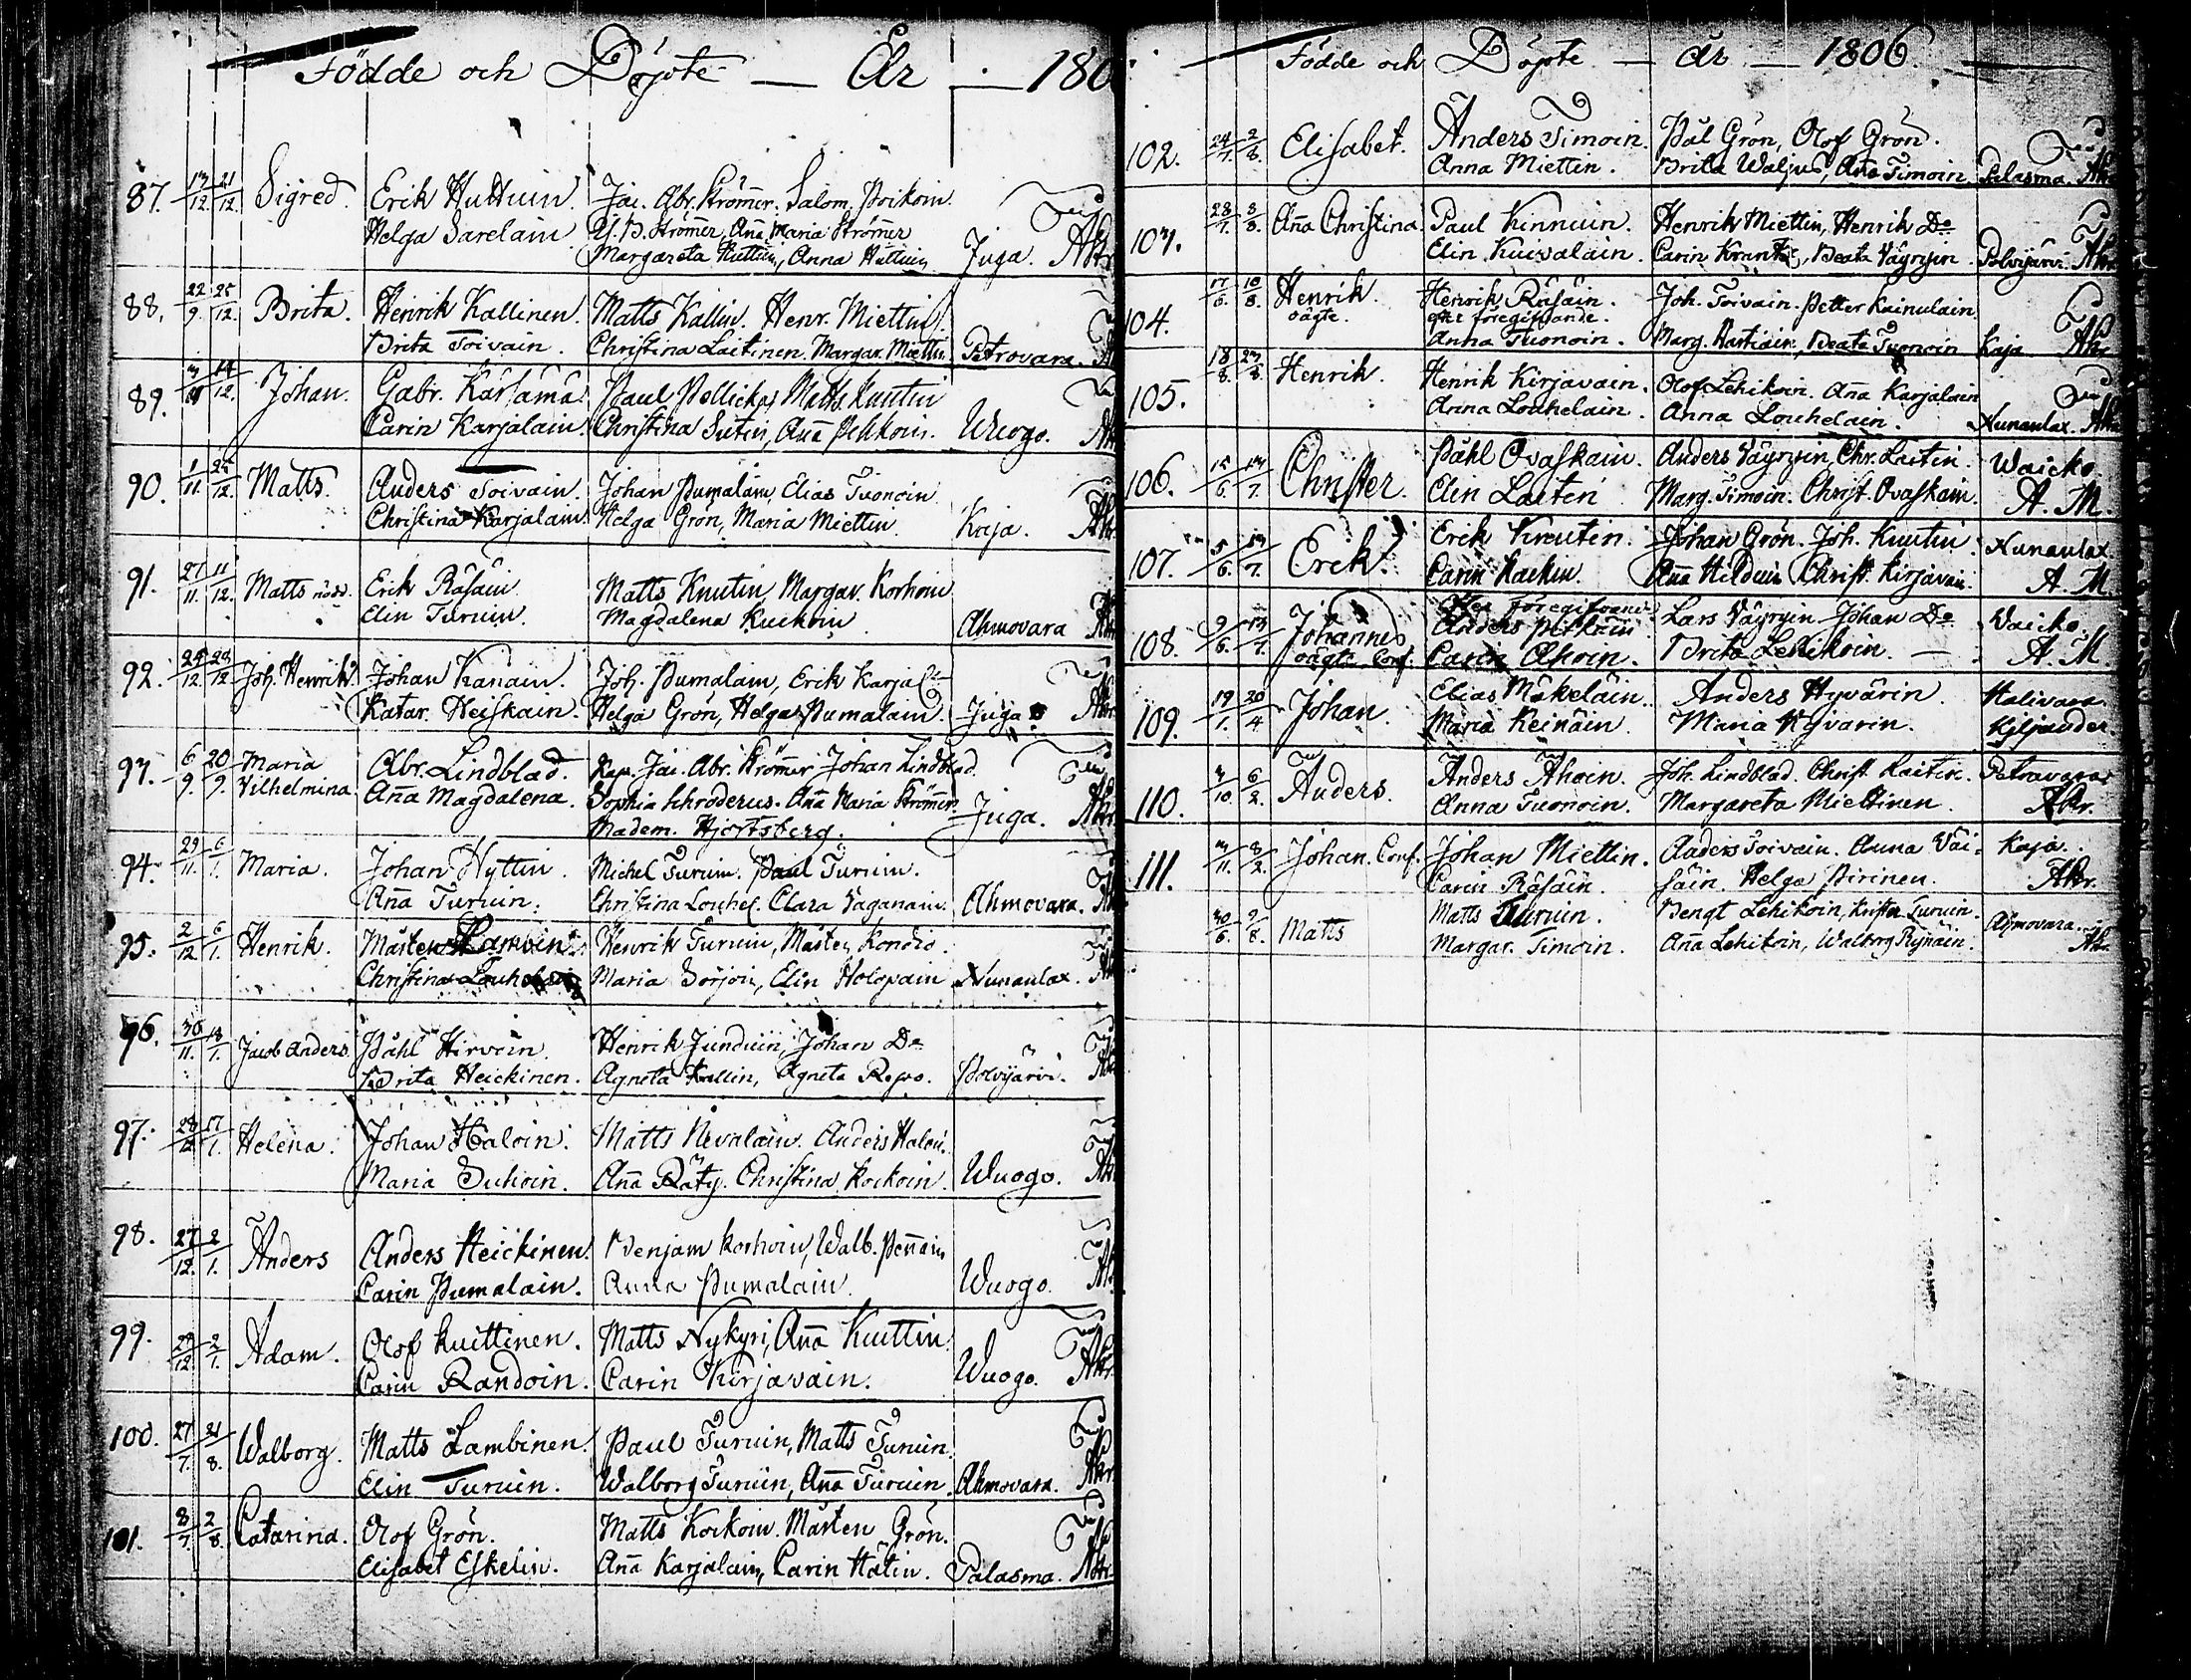 Födde och Döpte — År — 180
87. 13/12 21/12 Sigred. Erik Huttuin. Jac. Abr. Strömer. Salom. Poikoin.
Helga Sarelain Strömer, Aña Maria Strömer
Margareta Huttuin, Anna Huttuin Juga.
88. 22/9 25/12 Brita. Henrik Kallinen. Matts Kallin. Henr. Miettin.
Brita Toivain. Christina Laitinen. Margar. Miettin. Petrovara.
89. 14/12 Johan. Gabr. Kärhämä. Paul Pellickas, Matts Knutin
Carin Karjalain. Christina Sutin, Aña Pehkoin. Wuogo.
90. 1/11 25/12 Matts. Anders Toivain. Johan Pumalain, Elias Tuonoin
Christina Karjalain. Helga Grön, Maria Miettin. Kaja.
91. 27/11 11/12 Matts nödd. Erik Räsäin Matts Knutin, Margar. Korhoin
Elin Turuin. Magdalena Kuckoin Ahmovara
92. 25/12 28/12 Joh. Henrik. Johan Kanain. Joh. Pumalain, Erik Karjal:n
Katar. Heiskain. Helga Grön, Helga Pumalain. Juga
93. 6/9 20/9 Maria Abr. Lindblad. Kap. Jac. Abr. Strömer Johan Lindblad.
Vilhelmina. Aña Magdalena. Sophia Schroderus. Aña Maria Strömer
Madem. Hjortsberg. Juga.
94. 29/11 6/1 Maria. Johan Hyttin. Michel Turuin. Paul Turuin.
Aña Turuin. Christina Louhel. Clara Vaganain. Ahmovara.
95. 2/12 6/1 Henrik. Mårten Lambin. Henrik Turuin, Mårten Kondio.
Christina Louhelain Maria Sorjoin, Elin Holopain Nunanlax.
96. 30/11 Jacob Anders. Påhl Hirvoin. Henrik Junduin, Johan Do
Brita Heickinen. Agneta Kallin, Agneta Repo. Polvijärvi.
97. 17/1 Helena. Johan Haloin. Matts Nevalain. Anders Haloin.
Maria Suhoin. Aña Räty. Christina Kockoin. Wuogo.
98. 27/12 2/1 Anders Anders Heickinen. Benjam Korhoin, Walb. Peñain
Carin Pumalain. Anna Pumalain. Wuogo.
99. 29/12 2/1 Adam. Olof Kuittinen. Matts Nykyri, Aña Kuittin.
Carin Randoin. Carin Kirjavain. Wuogo. Akr.
100. 27/7 21/8 Walborg. Matts Lambinen. Paul Turuin, Matts Turuin.
Elin Turuin. Walborg Turuin, Aña Turuin. Ahmovara.
101. 8/7 2/8 Catarina. Olof Grön. Matts Kockoin. Mårten Grön.
Elisabet Eskelin. Aña Karjalain, Carin Hätin. Palasma.
Födde och Döpte — år — 1806.
102. 24/7 2/8 Elisabet. Anders Timoin. Pål Grön, Olof Grön.
Anna Miettin. Brita Waljus, Aña Timoin. Palasma.
103. 28/7 3/8 Aña Christina. Paul Kinnuin. Henrik Miettin, Henrik Do
Elin Kuivalain. Carin Krants, Beata Väyryin Polvijärvi.
104. 17/6 10/8 Henrik. Henrik Räsäin. Joh. Toivain. Petter Kainulain.
oägte. efter föregifvande.
Anna Tuonoin. Marg. Hartikain, Beata Tuonoin Kaja
105. 18/8 23/8 Henrik. Henrik Kirjavain. Olof Lehikoin. Aña Karjalain
Anna Louhelain. Anna Louhelain. Nunanlax.
106. 15/6 13/7 Christer. Påhl Ovaskain. Anders Väyryin, Chr. Laitin. Waicko.
Elin Laiten Marg. Timoin. Christ. Ovaskain. A. M.
107. 5/6 13/7 Erik. Erik Knutin. Johan Grön. Joh. Knutin. Nunanlax
Carin Hackin. Aña Hilduin Christ. Kirjavain. A. M
108. 9/6 13/7 Johannes Efter föregifvande Lars Väyryin Johan Do Waicko.
oägte Conf. Anders Pitkäin Carin Ahoin. Brita Lehikoin. — A. M.
109. 19/1 20/4 Johan. Elias Mäkeläin. Anders Hyvärin. Halivara
Maria Keinäin. Maria Hyvarin. Kiljander
110. 3/10 6/2 Anders. Anders Ahoin. Joh. Lindblad. Christ. Laitin. Petravara
Anna Tuonoin. Margareta Miettinen. Akr.
111. 3/11 8/2 Johan. Conf. Johan Miettin. Anders Toivain. Anna Väi- Kaja.
Carin Räsäin. säin. Helga Pirinen. Akr.
30/6 9/8 Matts Matts Turuin. Bengt Lehikoin, Krister Turuin. Ahmovara.
Margar. Timoin. Aña Lehikoin, Walborg Ryñäin.